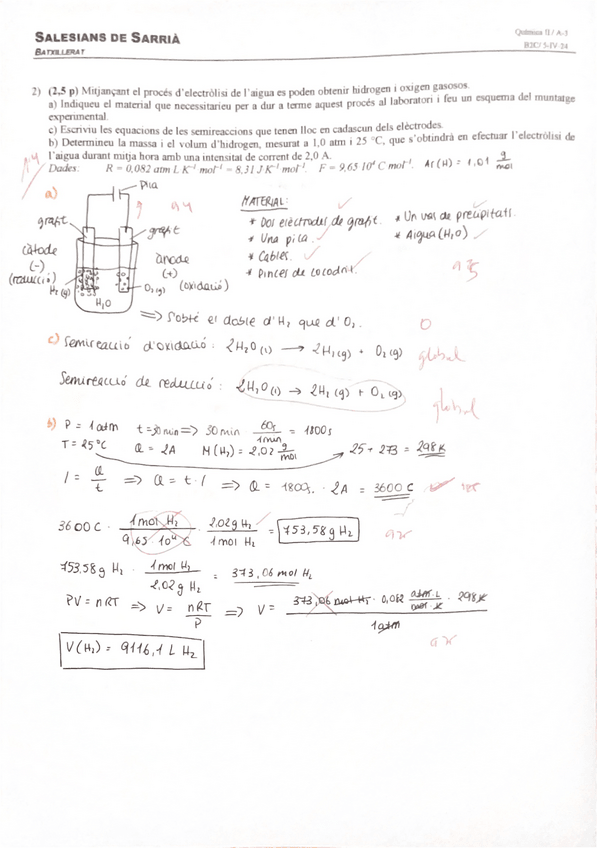 SALESIANS DE SARRIÀ
BATXILLERAT
Química II / A-3
B2C/ 5-IV-24
2) (2,5 p) Mitjançant el procés d'electròlisi de l'aigua es poden obtenir hidrogen i oxigen gasosos.
a) Indiqueu el material que necessitaríeu per a dur a terme aquest procés al laboratori i feu un esquema del muntatge
experimental.
c) Escriviu les equacions de les semireaccions que tenen lloc en cadascun dels elèctrodes.
b) Determineu la massa i el volum d'hidrogen, mesurat a 1,0 atm i 25 °C, que s'obtindrà en efectuar l'electròlisi de
l'aigua durant mitja hora amb una intensitat de corrent de 2,0 A.
Dades: R = 0,082 atm L K⁻¹ mol⁻¹ = 8,31 J K⁻¹ mol⁻¹. F = 9,65 10⁴ C mol⁻¹. Ar(H) = 1,01 g/mol
a)
Pila
grafit
grafit
càtode
(-)
(reducció)
H₂(g)
ànode
(+)
(oxidació)
O₂(g)
H₂O
MATERIAL:
* Dos elèctrodes de grafit.
* Una pila.
* Cables.
* Pinces de cocodril.
* Un vas de precipitats.
* Aigua (H₂O)
=> S'obté el doble d'H₂ que d'O₂.
0
c) Semireacció d'oxidació: 2H₂O(l) → 2H₂(g) + O₂(g)
global
Semireacció de reducció: 2H₂O(l) → 2H₂(g) + O₂(g)
global
b) P = 1 atm t = 30 min => 30 min · 60s/1min = 1800 s
T = 25°C Q = 2A M(H₂) = 2,02 g/mol 25 + 273 = 298 K
I = Q/t => Q = t · I => Q = 1800s · 2A = 3600 C
3600 C · 1 mol H₂/9,65 · 10⁴ C · 2,02g H₂/1 mol H₂ = 753,58 g H₂
753,58 g H₂ · 1 mol H₂/2,02 g H₂ = 373,06 mol H₂
PV = nRT => V = nRT/P => V = 373,06 mol H₂ · 0,082 atm·L/mol·K · 298K/1 atm
V(H₂) = 9116,1 L H₂